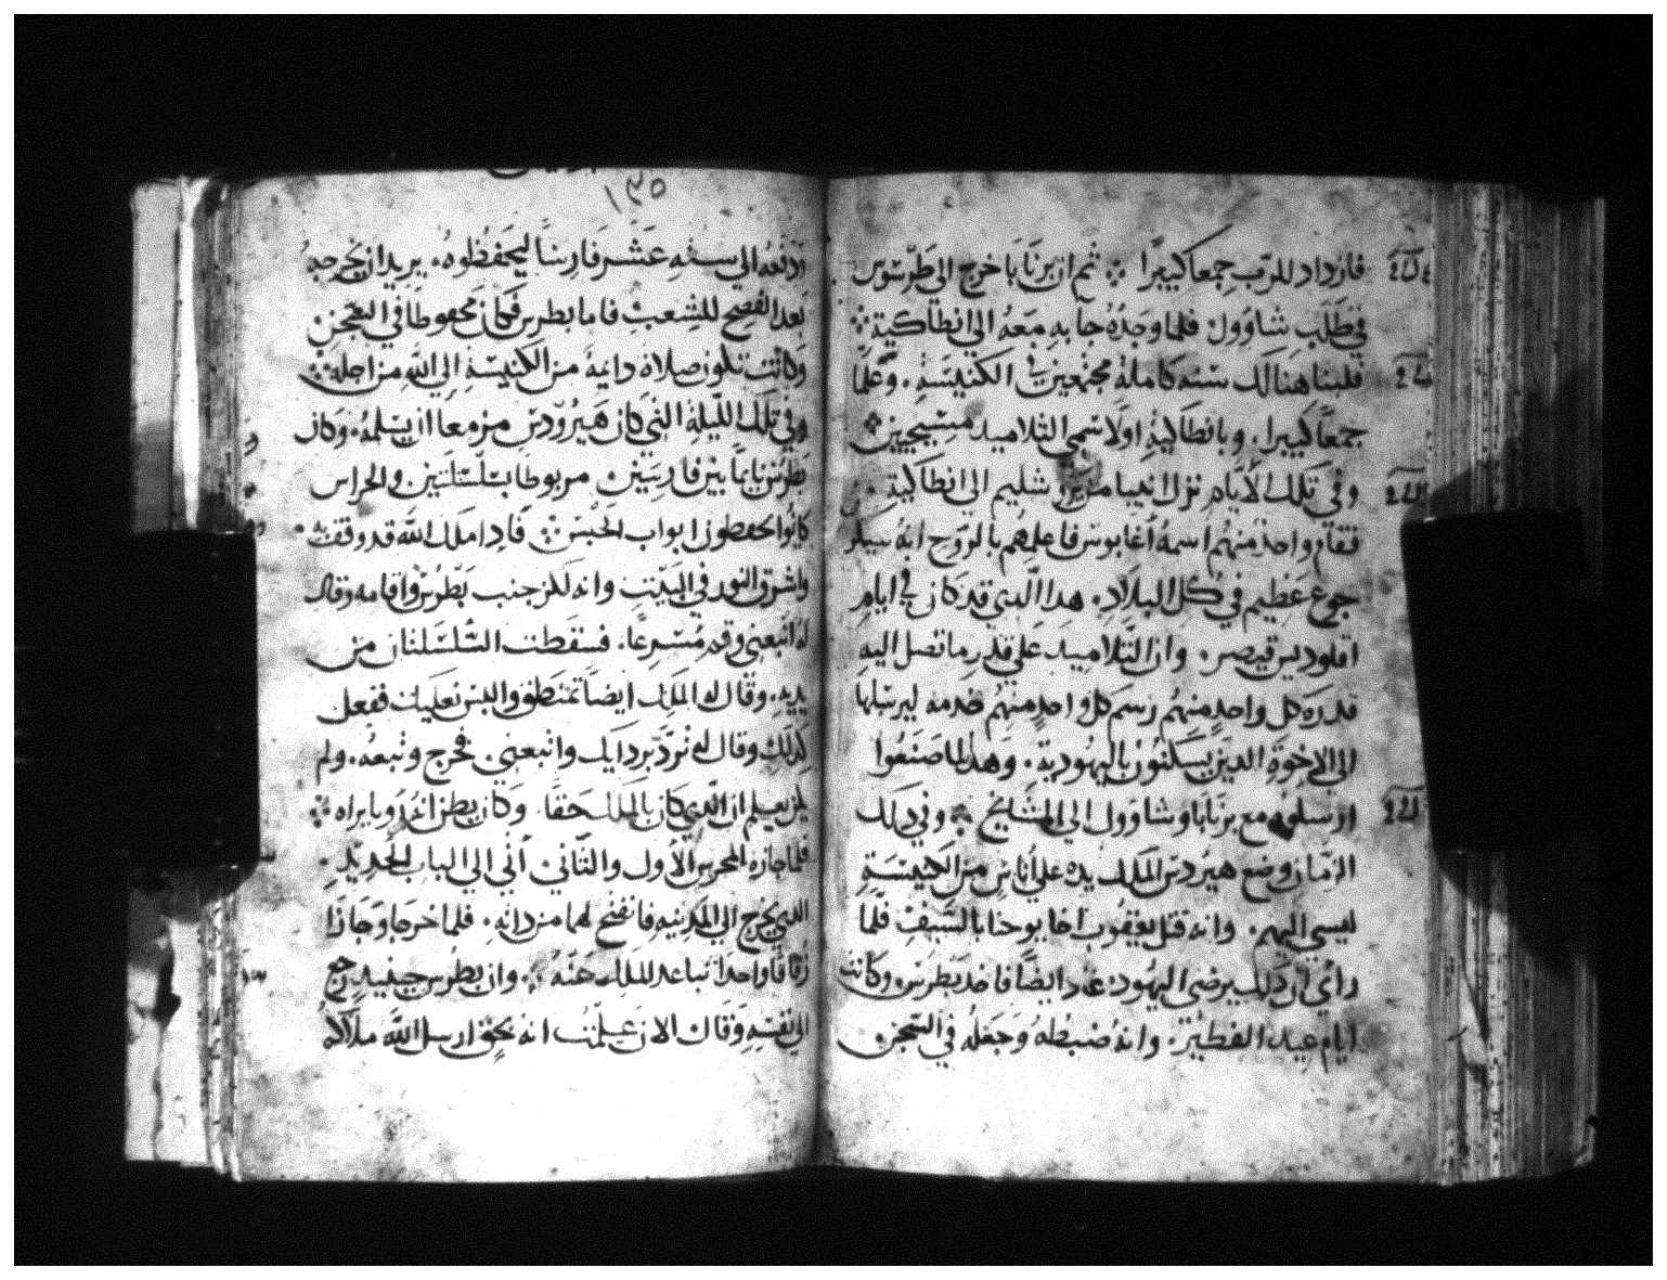 فازداد للرب جمعا كبيرًا ثم ان برنابا خرج الي طرسوس
في طلب شاوول فلما وجده جا به معه الي انطاكية
فلبثا هنالك سنه كاملة مجتمعين في الكنيسة وعلما
جمعًا كبيرا وبانطاكية اولا سمي التلاميد مسيحيين
وفي تلك الأيام نزل انبيا من يروشليم الي انطاكية
فقام واحد منهم اسمه أغابوس فاعلمهم بالروح انه سيكون
جوع عظيم في كل البلاد هدا الدي قد كان في ايام
اقلوديس قيصر وان التلاميد علي قدر ما تصل اليه
قدره كل واحد منهم رسم كل واحد منهم خدمه ليرسلها
الي الاخوة الدين يسكنون باليهودية وهدا لما صنعوا
ارسلوه مع برنابا وشاوول الي المشايخ وفي دلك
الزمان وضع هيرودس الملك يده علي أناس من الكنيسة
ليسي اليهم وانه قتل يعقوب اخا يوحنا بالسيف فلما
رأي ان دلك يرضي اليهود عاد ايضًا فاخد بطرس وكانت
ايام عيد الفطير وانه ضبطه وجعله في السجن
١٣٥
ودفعه الي سته عشر فارسًا ليحفظوه يريد ان يخرجه
بعد الفصح للشعب فاما بطرس فكان محفوظا في السجن
وكانت تكون صلاة دايمة من الكنيسة الي الله من اجله
وفي تلك الليلة التي كان هيرودس مزمعا ان يسلمه وكان
بطرس نايمًا بين فارسين مربوطا بسلسلتين والحراس
كانوا يحفظون ابواب الحبس فادا ملاك الله قد وقف به
واشرق النور في البيت وانه لكز جنب بطرس واقامه وقال
له اتبعني وقم مسرعا فسقطت السلسلتان من
يديه وقال له الملاك ايضًا تمنطق والبس نعليك ففعل
كدلك وقال له تردّ بردايك واتبعني فخرج وتبعه ولم
يكن يعلم ان الدي كان بالملك حقا وكان يظن انه رويا يراه
فلما جازه المحرس الأول والثاني أتي الي الباب الحديد
الدي يخرج الي المدينه فانفتح لهما من داته فلما خرجا وجازا
زقاقًا واحدا تباعد الملاك عنه وان بطرس حينيد رجع
الي نفسه وقال الان علمت انه بحق ارسل الله ملاكه